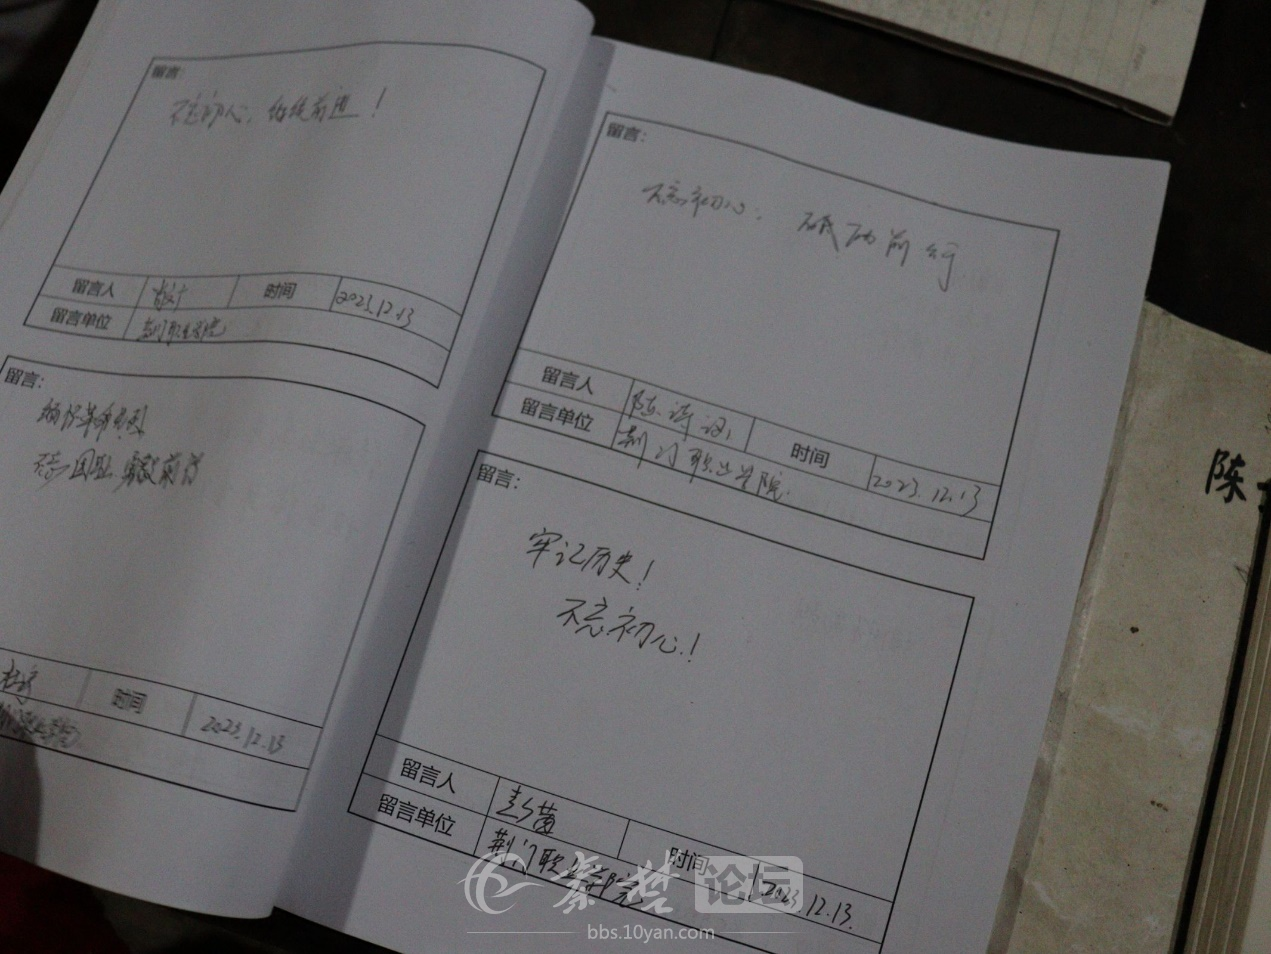 留言:
不忘初心，继续前进！
留言人
时间
2023.12.13
留言单位
荆门职业学院
留言:
缅怀革命先烈
不忘国耻 勇敢前行
时间
2023.12.13
留言:
不忘初心，砥砺前行
留言人
陈
时间
2023.12.13
留言单位
荆门职业学院
留言:
牢记历史！
不忘初心！
留言人
时间
2023.12.13
留言单位
荆门职业学院
陈
秦楚论坛
bbs.10yan.com